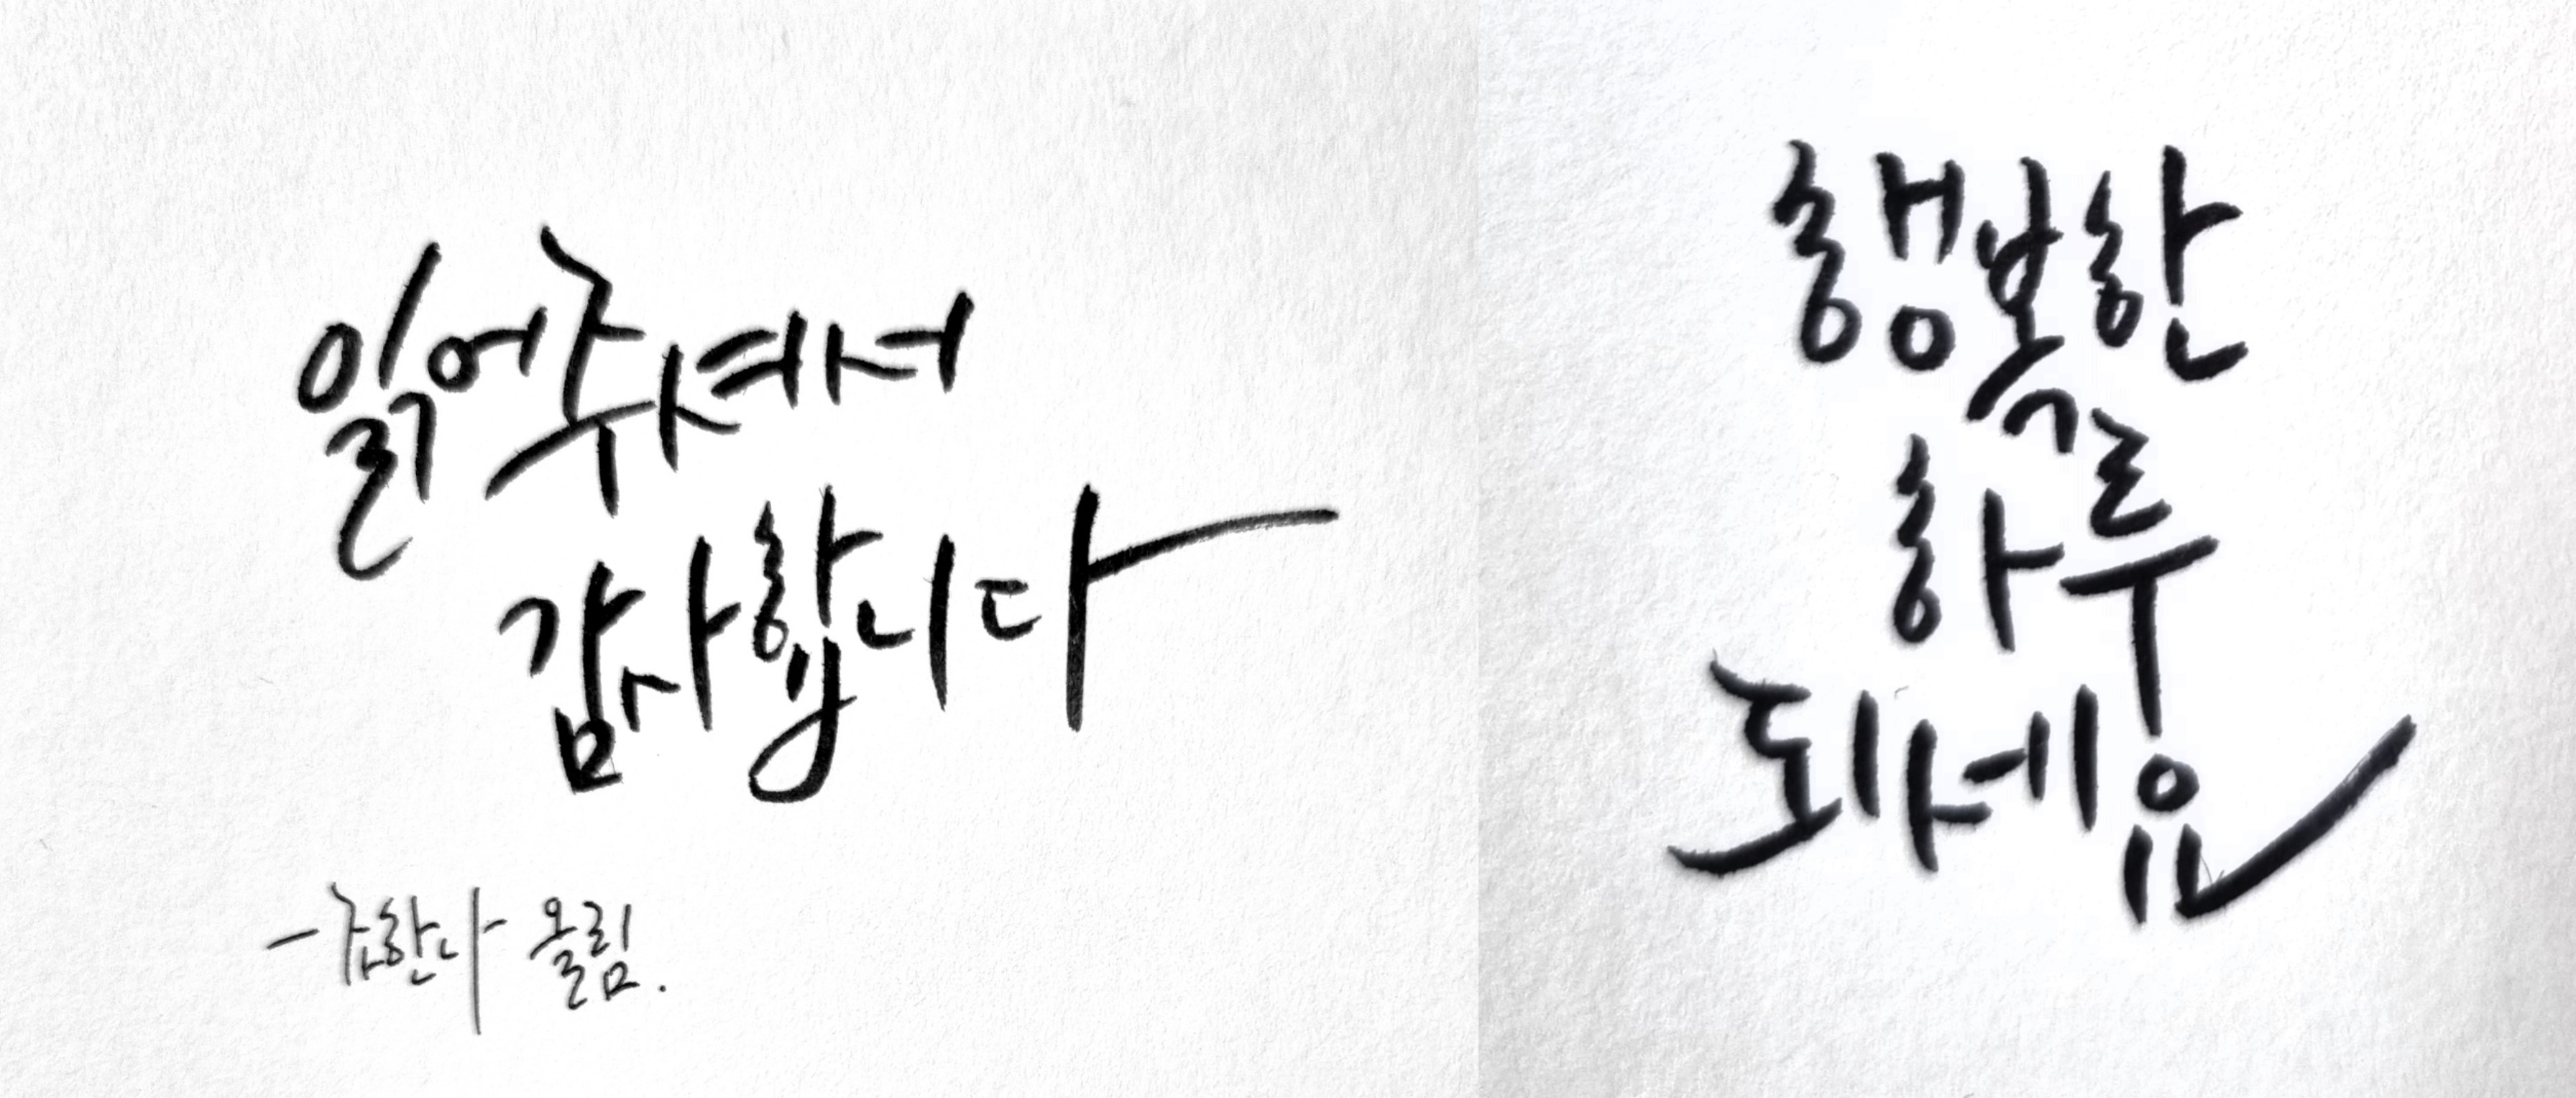 읽어주셔서
감사합니다
- 올림.
행복한
하루
되세요